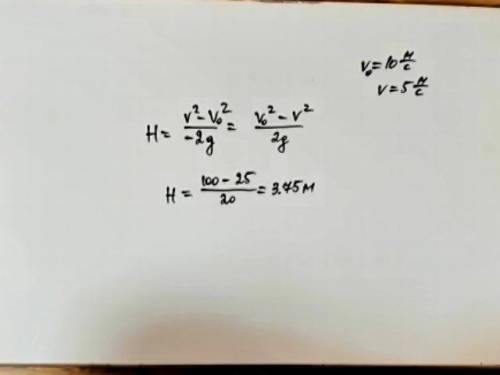 v₀ = 10 м/с
v = 5 м/с
H = (v² − v₀²)/(−2g) = (v₀² − v²)/(2g)
H = (100 − 25)/20 = 3.75 м